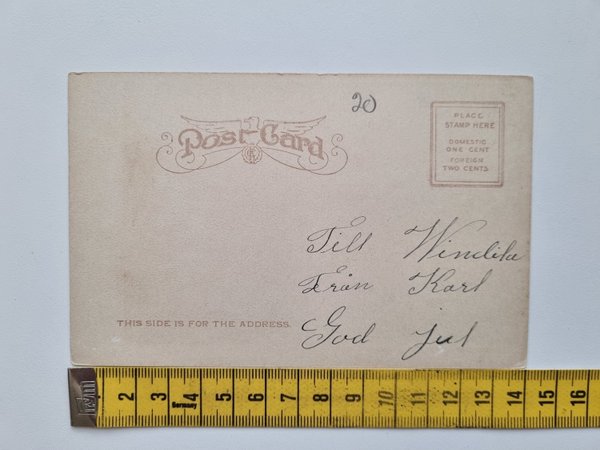 20
Post Card
PLACE
STAMP HERE
DOMESTIC
ONE CENT
FOREIGN
TWO CENTS
Till Windila
Från Karl
God jul
THIS SIDE IS FOR THE ADDRESS.
2 3 4 5 6 7 8 9 10 11 12 13 14 15 16
Germany